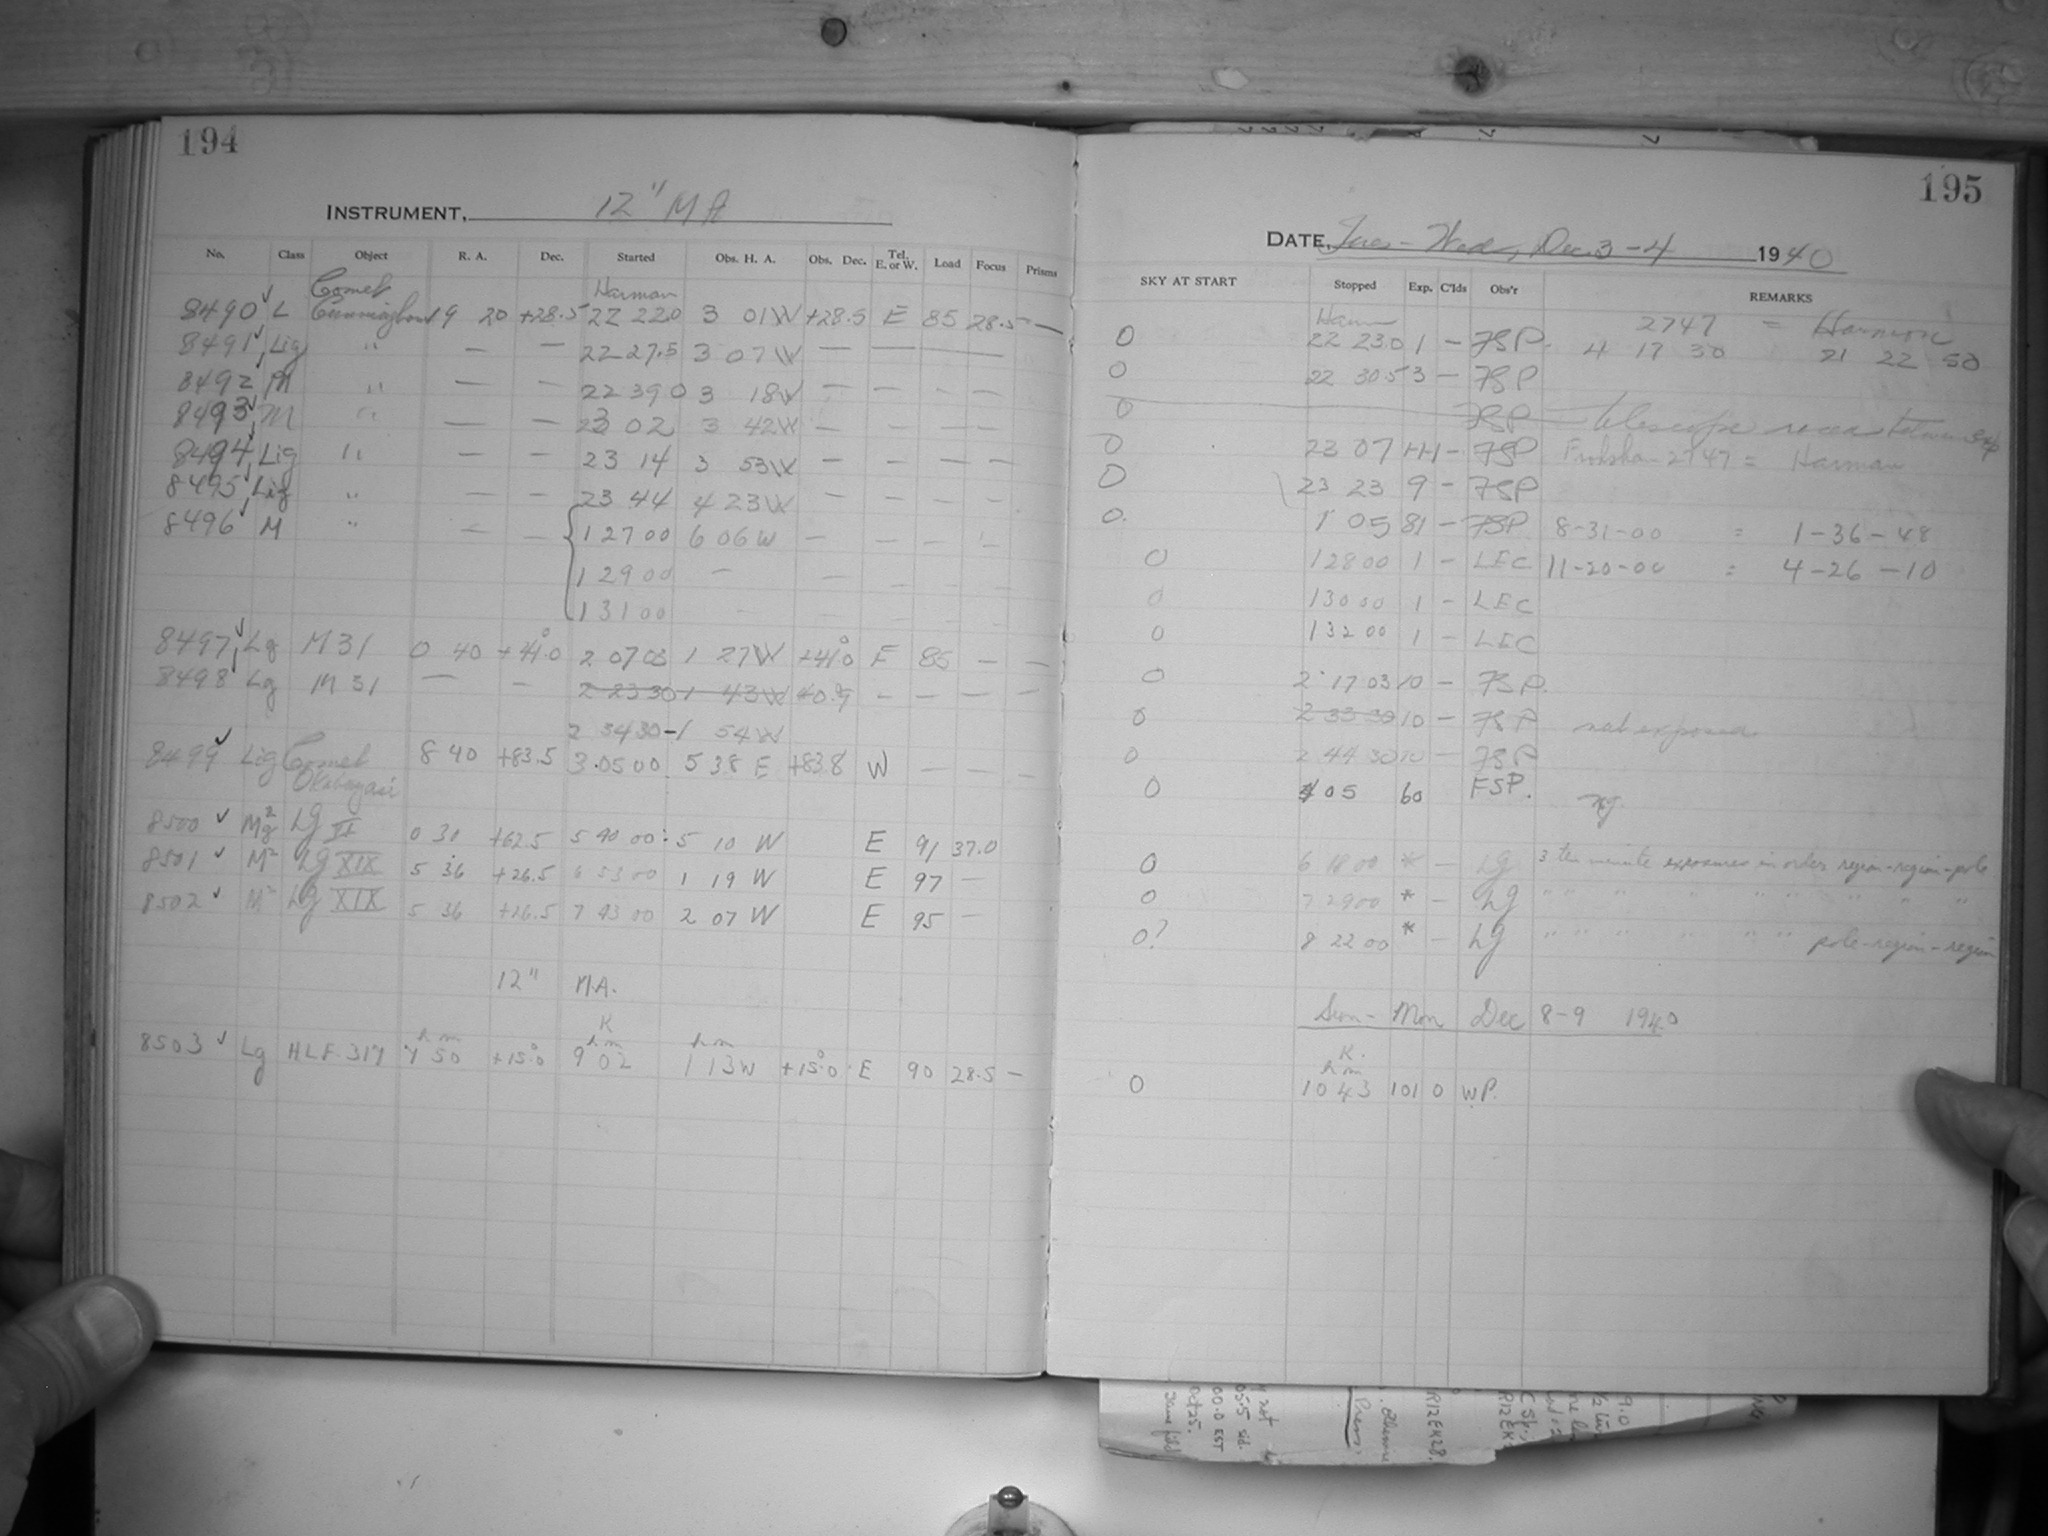 194
INSTRUMENT, 12" MA
No. Class Object R. A. Dec. Started Obs. H. A. Obs. Dec. Tel. E. or W. Load Focus Prisms
Comet Harman
8490 ✓ L Cunningham 19 20 +28.5 22 22.0 3 01W +28.5 E 85 28.5 —
8491 ✓ Lig " — — 22 27.5 3 07W — — — —
8492 ✓ M " — — 22 39 0 3 18W — — — —
8493 ✓ M " — — 23 02 3 42W — — — —
8494 ✓ Lig " — — 23 14 3 53W — — — —
8495 ✓ Lig " — — 23 44 4 23W — — — —
8496 ✓ M " — — 1 27 00 6 06W — — — —
1 29 00 — — — — —
1 31 00 — — — — —
8497 ✓ Lg M 31 0 40 +41.0 2 07 03 1 27W +41.0 E 85 — —
8498 Lg M 31 — — 2 23 30 1 43W 40.9 — — — —
2 34 30 - 1 54W
8499 ✓ Lig Comet 8 40 +83.5 3.05 00 5 38 E +83.8 W — — —
Okabayasi
8500 ✓ M²g Lg VI 0 30 +62.5 5 40 00: 5 10 W E 91 37.0
8501 ✓ M² Lg XIX 5 36 +26.5 6 53 00 1 19 W E 97 —
8502 ✓ M² Lg XIX 5 36 +26.5 7 43 00 2 07 W E 95 —
12" M.A.
K
h m h m h m
8503 ✓ Lg HLF 317 7 50 +15.0 9 02 1 13W +15.0 E 90 28.5 —
195
DATE, Tues - Wed, Dec. 3-4 1940
SKY AT START Stopped Exp. C'lds Obs'r REMARKS
2747 = Harmon
0 22 23.0 1 — FSP. 4 17 30 21 22 50
0 22 30.5 3 — FSP
0 FSP telescope between exp
0 23 07 — FSP 2747 = Harman
0 23 23 9 — FSP
0. 1 05 81 — FSP 8-31-00 = 1-36-48
0 1 28 00 1 — LEC 11-20-00 = 4-26-10
0 1 30 00 1 — LEC
0 1 32 00 1 — LEC
0 2 17 03 10 — FSP.
0 2 33 30 10 — FSP not exposed
0 2 44 30 10 — FSP
0 4 05 60 FSP. ng.
0 6 18 00 * — Lg 3 ten minute exposures in order region-region-pole
0 7 29 00 * — Lg " " " " " " " " "
0? 8 22 00 * — Lg " " " " " " pole-region-region
Sun - Mon Dec 8-9 1940
K.
h m
0 10 43 101 0 WP.